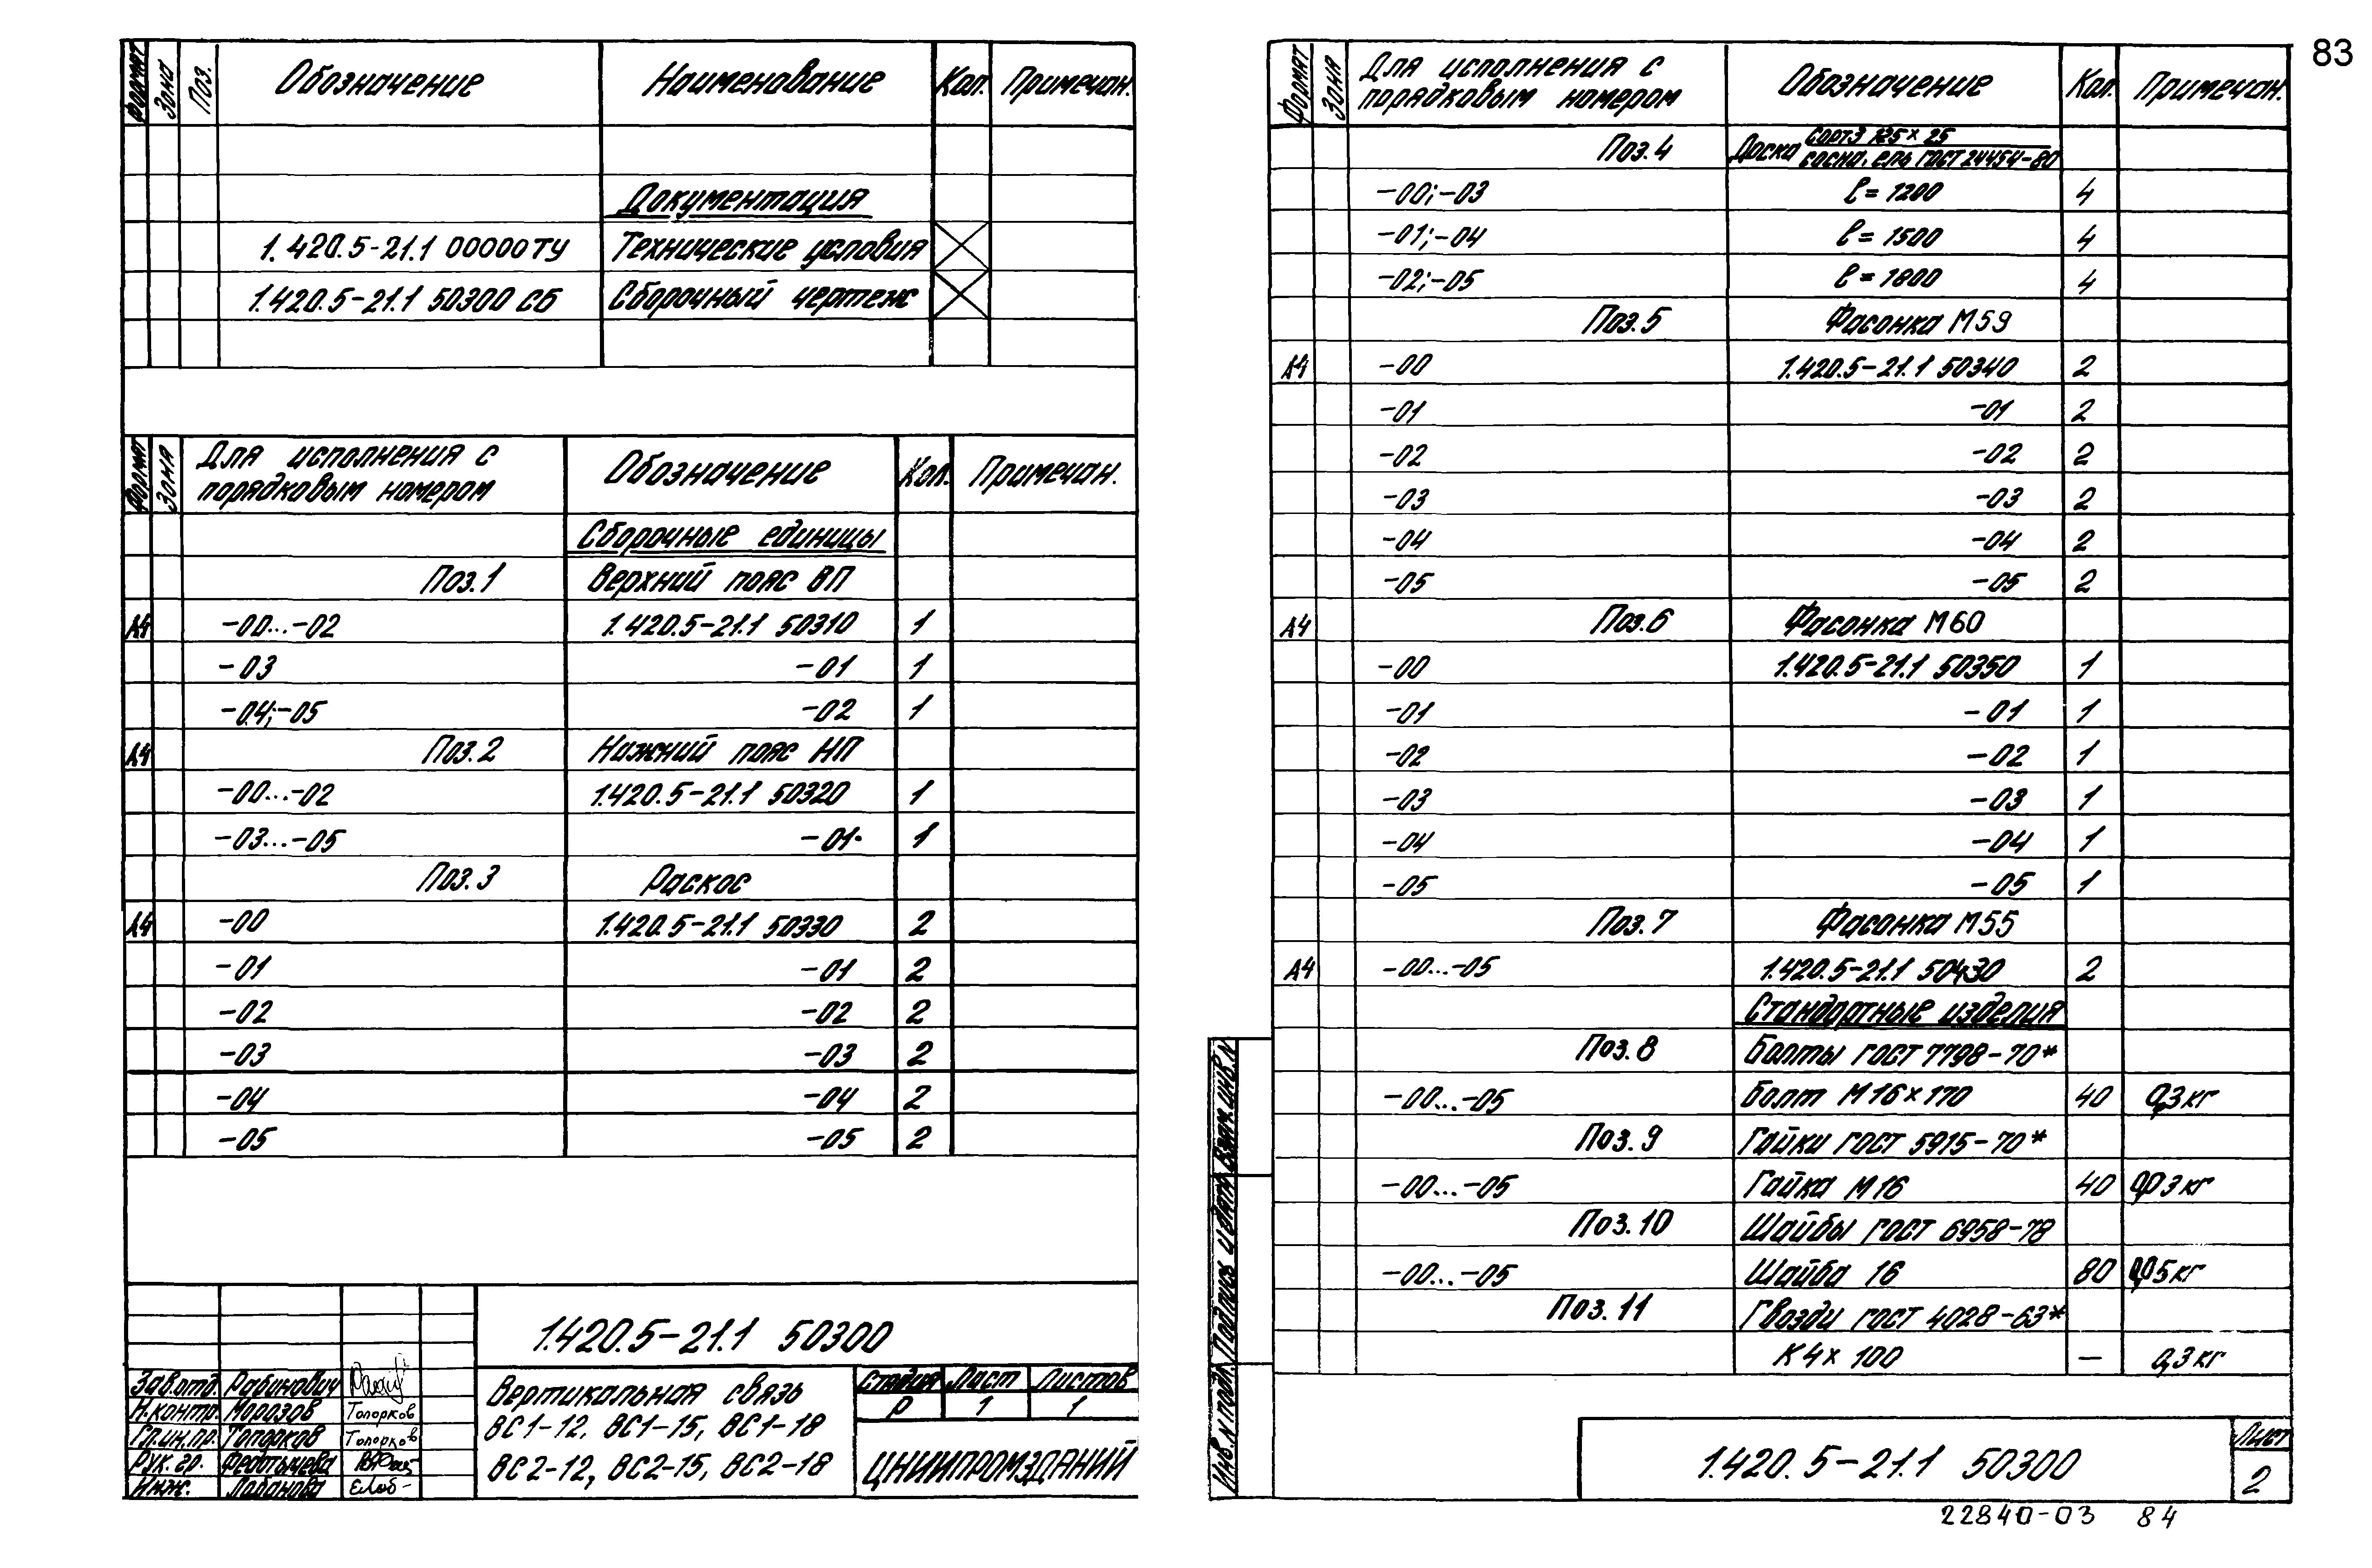 83
Формат Зона Поз. Обозначение Наименование Кол. Примечан.
Документация
1.420.5-21.1 00000 ТУ Технические условия
1.420.5-21.1 50300 СБ Сборочный чертеж
Формат Зона Для исполнения с порядковым номером Обозначение Кол. Примечан.
Сборочные единицы
Поз.1 Верхний пояс ВП
А4 -00...-02 1.420.5-21.1 50310 1
-03 -01 1
-04;-05 -02 1
А4 Поз.2 Нижний пояс НП
-00...-02 1.420.5-21.1 50320 1
-03...-05 -01 1
Поз.3 Раскос
А4 -00 1.420.5-21.1 50330 2
-01 -01 2
-02 -02 2
-03 -03 2
-04 -04 2
-05 -05 2
1.420.5-21.1 50300
Зав.отд. Рабинович
Н.контр. Морозов Топорков
Гл.инж.пр. Топорков Топорков
Рук.гр.
Инж. Лобанова
Вертикальная связь
ВС1-12, ВС1-15, ВС1-18
ВС2-12, ВС2-15, ВС2-18
Стадия Лист Листов
Р 1 1
ЦНИИПРОМЗДАНИЙ
Формат Зона Для исполнения с порядковым номером Обозначение Кол. Примечан.
Поз.4 Доска Сорт3 125×25
сосна, ель ГОСТ 24454-80
-00;-03 ℓ=1200 4
-01;-04 ℓ=1500 4
-02;-05 ℓ=1800 4
Поз.5 Фасонка М59
А4 -00 1.420.5-21.1 50340 2
-01 -01 2
-02 -02 2
-03 -03 2
-04 -04 2
-05 -05 2
А4 Поз.6 Фасонка М60
-00 1.420.5-21.1 50350 1
-01 -01 1
-02 -02 1
-03 -03 1
-04 -04 1
-05 -05 1
Поз.7 Фасонка М55
А4 -00...-05 1.420.5-21.1 50430 2
Стандартные изделия
Поз.8 Болты ГОСТ 7798-70*
-00...-05 Болт М16×170 40 0,3 кг
Поз.9 Гайки ГОСТ 5915-70*
-00...-05 Гайка М16 40 0,03 кг
Поз.10 Шайбы ГОСТ 6958-78
-00...-05 Шайба 16 80 0,05 кг
Поз.11 Гвозди ГОСТ 4028-63*
К 4×100 — 0,3 кг
Инв.N подл. Подпись и дата Взам.инв.N
1.420.5-21.1 50300
Лист
2
22840-03 84